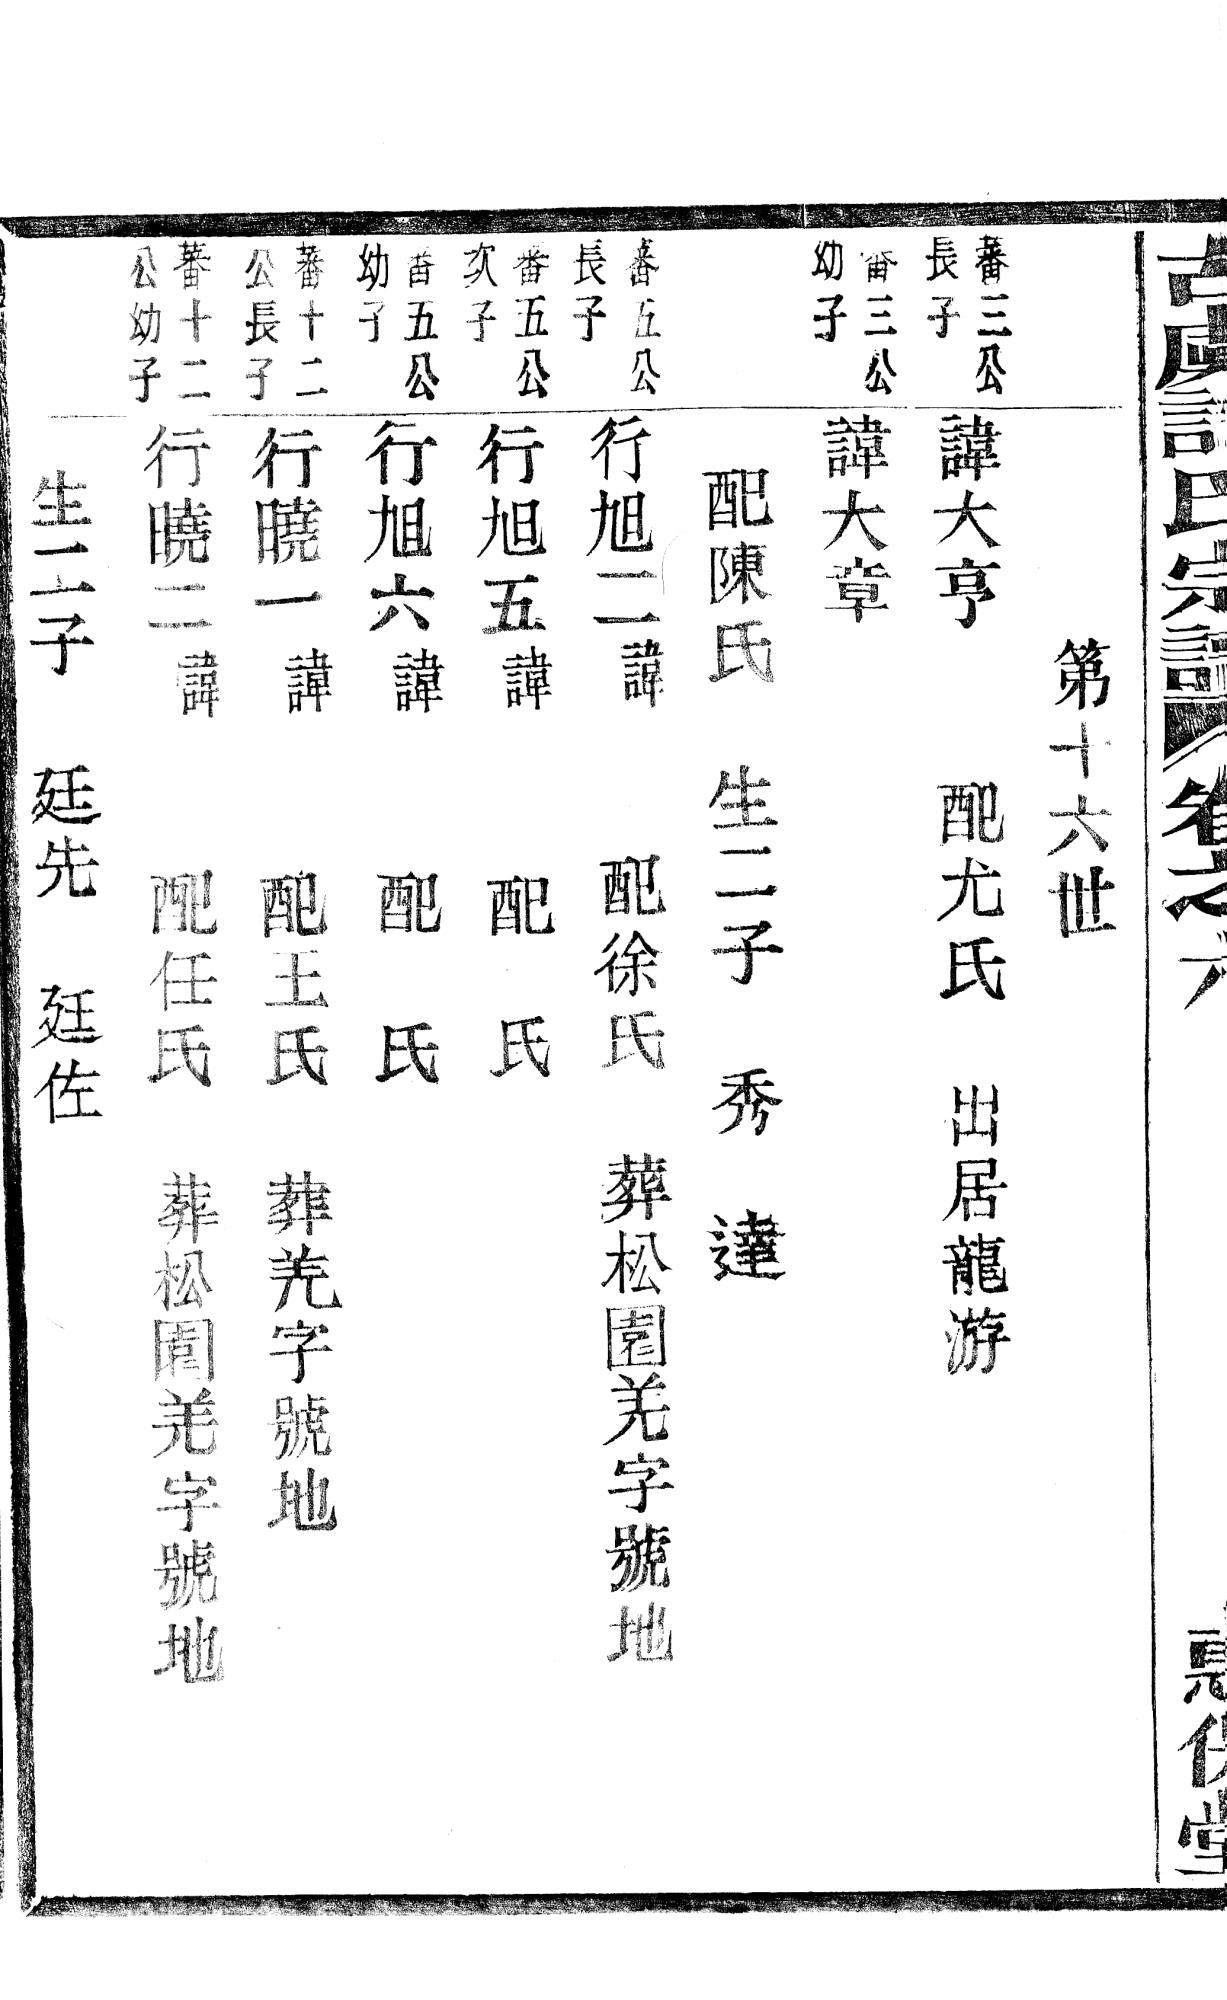 古虞 氏宗譜 卷之六 堂
第十六世
蕃三公
長子
諱大亨 配尤氏 出居龍游
蕃三公
幼子
諱大章
配陳氏 生二子 秀 達
蕃五公
長子
行旭二 諱 配徐氏 葬松園羌字號地
蕃五公
次子
行旭五 諱 配 氏
蕃五公
幼子
行旭六 諱 配 氏
蕃十二
公長子
行曉一 諱 配王氏 葬羌字號地
蕃十二
公幼子
行曉二 諱 配任氏 葬松園羌字號地
生二子 廷先 廷佐